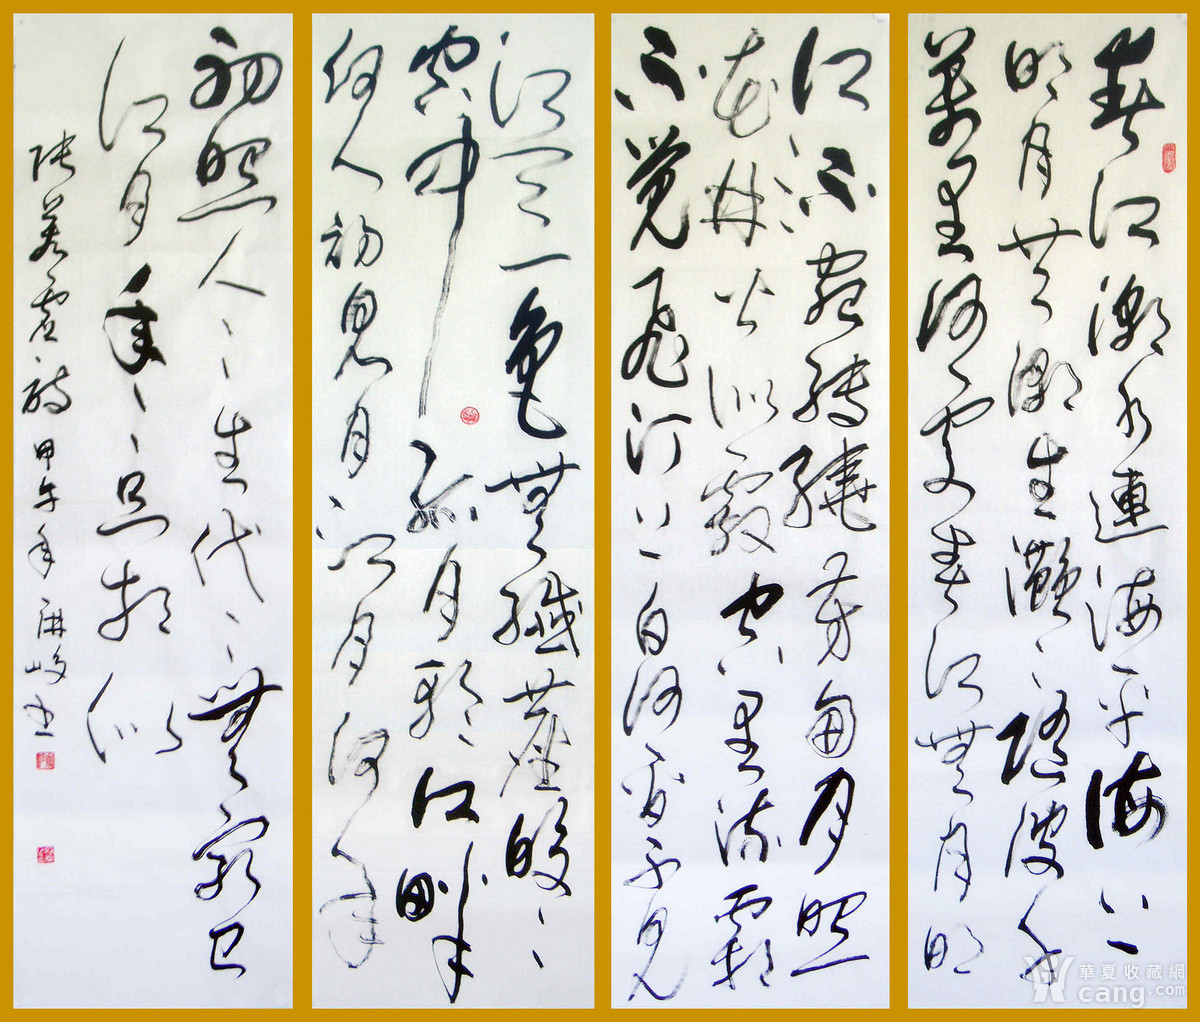 春江潮水連海平海上
明月共潮生灩灩隨波千
萬里何處春江無月明
江流宛轉繞芳甸月照
花林皆似霰空里流霜
不覺飛汀上白沙看不見
江天一色無纖塵皎皎
空中孤月輪江畔
何人初見月江月何年
初照人人生代代無窮已
江月年年只相似
张若虚詩甲午年峻书
華夏收藏網
cang.com